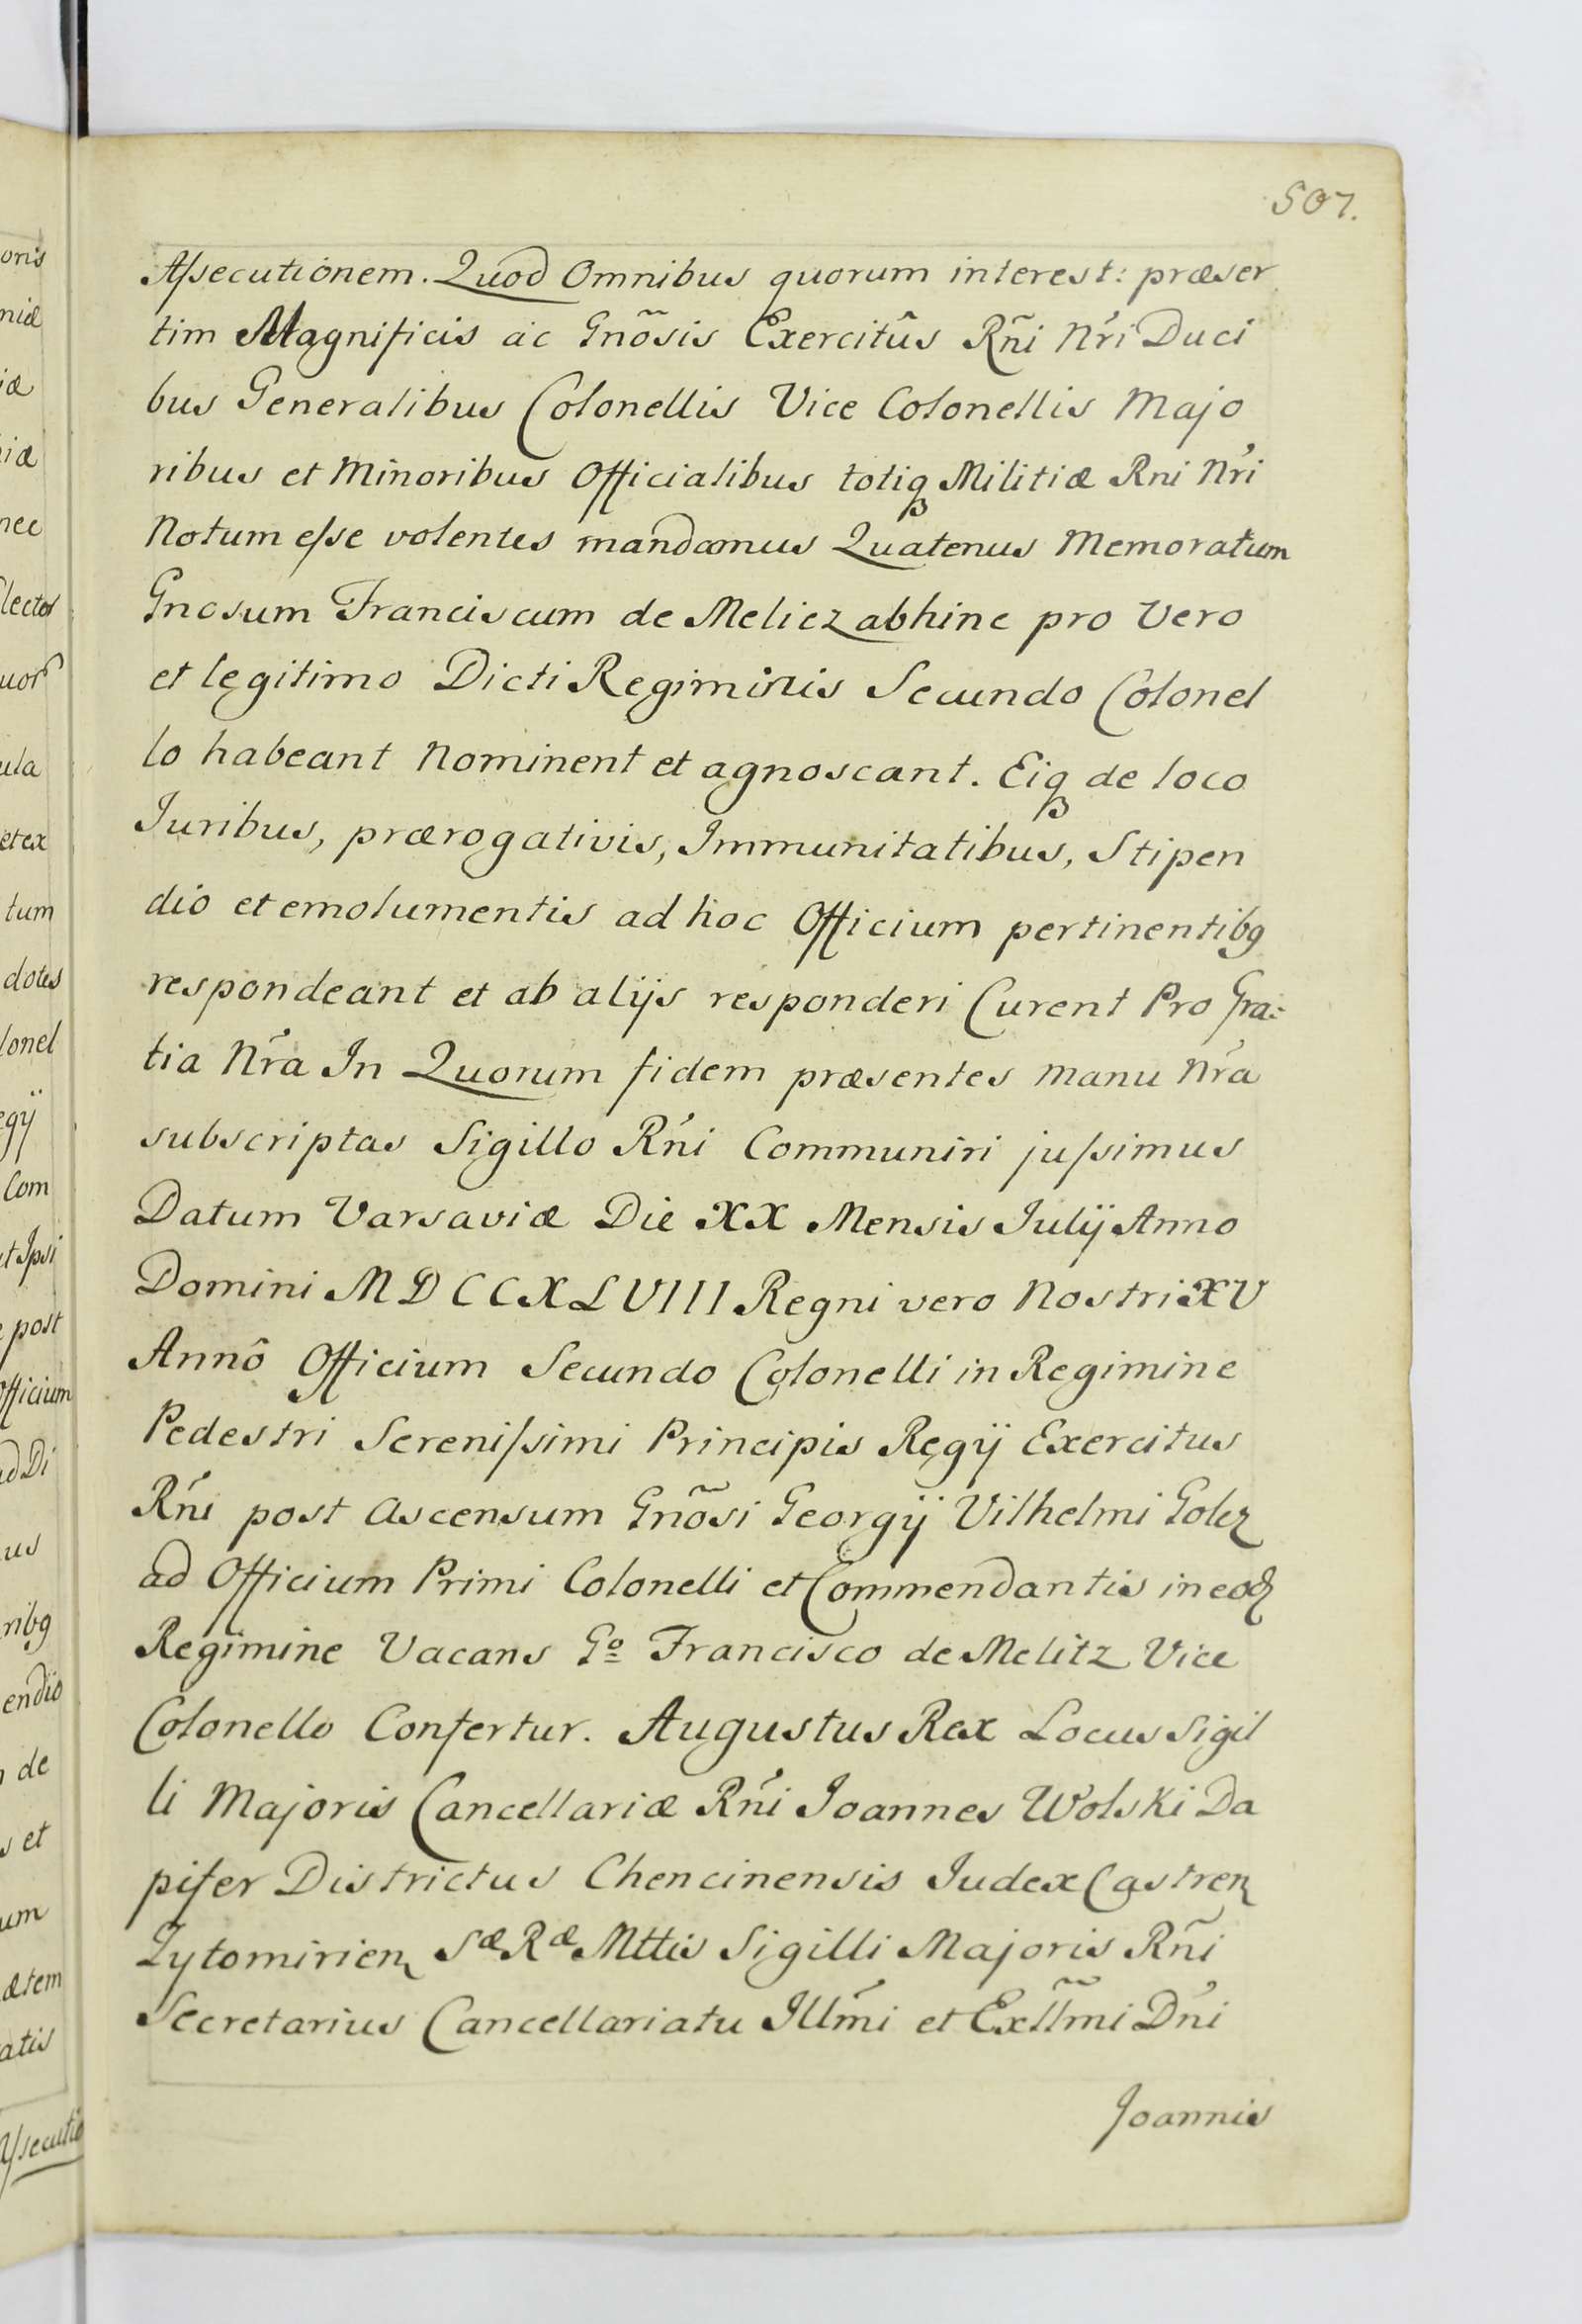 507.
Assecutionem. Quod Omnibus quorum interest: præser
tim Magnificis ac Gnõsis Exercitûs Rñi Nri Duci
bus Generalibus Colonellis Vice Colonellis Majo
ribus et Minoribus Officialibus totiq Militiæ Rni Nri
Notum esse volentes mandamus Quatenus Memoratum
Gnosum Franciscum de Meliez abhinc pro Vero
et legitimo Dicti Regiminis Secundo Colonel
lo habeant Nominent et agnoscant. Eiq de loco
Juribus, prærogativis, Immunitatibus, Stipen
dio et emolumentis ad hoc Officium pertinentibg
respondeant et ab alijs responderi Curent Pro Gra:
tia Nra In Quorum fidem præsentes Manu Nra
subscriptas Sigillo Rni Communiri jussimus
Datum Varsaviæ Die XX Mensis Julij Anno
Domini MDCCXLVIII Regni vero Nostri XV
Annô Officium Secundo Colonelli in Regimine
Pedestri Serenissimi Principis Regij Exercitus
Rni post Ascensum Gnõsi Georgij Vilhelmi Goltz
ad Officium Primi Colonelli et Commendantis in eoq
Regimine Vacans Go Francisco de Melitz Vice
Colonello Confertur. Augustus Rex Locus Sigil
li Majoris Cancellariæ Rni Joannes Wolski Da
pifer Districtus Chencinensis Judex Castren
Zytomirien Sæ Ræ Mttis Sigilli Majoris Rñi
Secretarius Cancellariatu Illmi et Exllmi Dni
Joannis
oris
niæ
iæ
iæ
nec
lectos
uor
ula
et ex
tum
dotes
lonel
egij
Com
et Ipsi
post
Officium
ad Di
us
ribg
endio
de
s et
um
ætem
atis
Assecutio